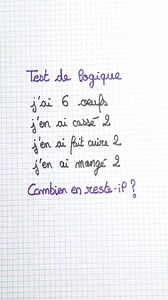 Test de logique
j'ai 6 œufs
j'en ai cassé 2
j'en ai fait cuire 2
j'en ai mangé 2
Combien en reste-il ?